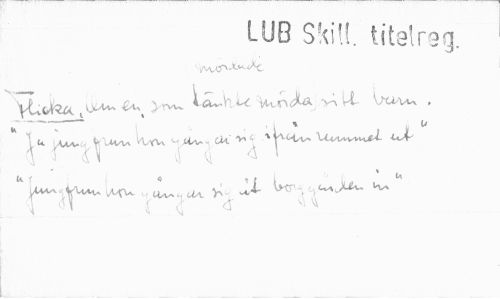 LUB Skill. titelreg.
mördade
Flicka, Om en, som tänkte mörda sitt barn.
"Ja jungfrun hon gångar sig ifrån rummet ut"
"Jungfrun hon gångar sig åt borggården in"